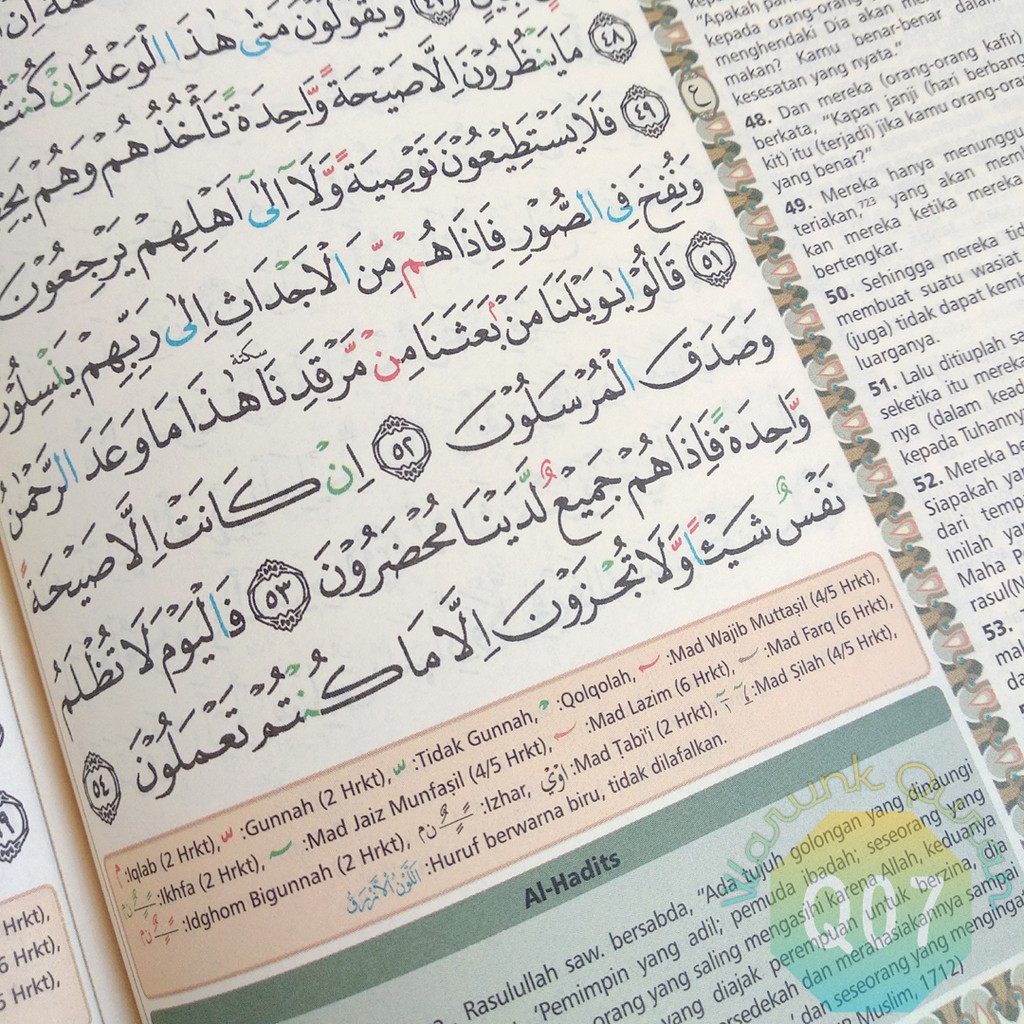 وَيَقُوْلُوْنَ مَتٰى هٰذَا الْوَعْدُ اِنْ كُنْتُمْ
٤٨ مَا يَنْظُرُوْنَ اِلَّا صَيْحَةً وَّاحِدَةً تَأْخُذُهُمْ وَهُمْ
٤٩ فَلَا يَسْتَطِيْعُوْنَ تَوْصِيَةً وَّلَآ اِلٰٓى اَهْلِهِمْ يَرْجِعُوْنَ
وَنُفِخَ فِى الصُّوْرِ فَاِذَا هُمْ مِّنَ الْاَجْدَاثِ اِلٰى رَبِّهِمْ يَنْسِلُوْنَ
٥١ قَالُوْا يٰوَيْلَنَا مَنْۢ بَعَثَنَا مِنْ مَّرْقَدِنَا سكتة هٰذَا مَا وَعَدَ الرَّحْمٰنُ
وَصَدَقَ الْمُرْسَلُوْنَ ٥٢ اِنْ كَانَتْ اِلَّا صَيْحَةً
وَّاحِدَةً فَاِذَا هُمْ جَمِيْعٌ لَّدَيْنَا مُحْضَرُوْنَ ٥٣ فَالْيَوْمَ لَا تُظْلَمُ
نَفْسٌ شَيْـًٔا وَّلَا تُجْزَوْنَ اِلَّا مَا كُنْتُمْ تَعْمَلُوْنَ ٥٤
:Iqlab (2 Hrkt), :Gunnah (2 Hrkt), :Tidak Gunnah, :Qolqolah, :Mad Wajib Muttaṣil (4/5 Hrkt),
:Ikhfa (2 Hrkt), :Mad Jaiz Munfaṣil (4/5 Hrkt), :Mad Lazim (6 Hrkt), :Mad Farq (6 Hrkt),
:Idghom Bigunnah (2 Hrkt), :Izhar, :Mad Tabi'i (2 Hrkt), :Mad Ṣilah (4/5 Hrkt),
اَللَّوْنُ الْاَزْرَقُ :Huruf berwarna biru, tidak dilafalkan.
Al-Hadits
Rasulullah saw. bersabda, "Ada tujuh golongan yang dinaungi
'Pemimpin yang adil; pemuda ibadah; seseorang yang
orang yang saling mengasihi karena Allah, keduanya
yang diajak perempuan untuk berzina, dia
bersedekah dan merahasiakannya sampai
dan seseorang yang mengingat
Muslim, 1712)
"Apakah
kepada orang-orang
menghendaki Dia akan
makan? Kamu benar-benar dalam
kesesatan yang nyata."
ع
48. Dan mereka (orang-orang kafir)
berkata, "Kapan janji (hari berbang
kit) itu (terjadi) jika kamu orang-ora
yang benar?"
49. Mereka hanya menunggu
teriakan,723 yang akan mem
kan mereka ketika mereka
bertengkar.
50. Sehingga mereka tid
membuat suatu wasiat
(juga) tidak dapat kemb
luarganya.
51. Lalu ditiuplah sa
seketika itu mereka
nya (dalam kead
kepada Tuhanny
52. Mereka be
Siapakah ya
dari temp
inilah ya
Maha P
rasul(N
53.
mak
da
Hrkt),
6 Hrkt),
5 Hrkt),
Warunk Quran
Q07